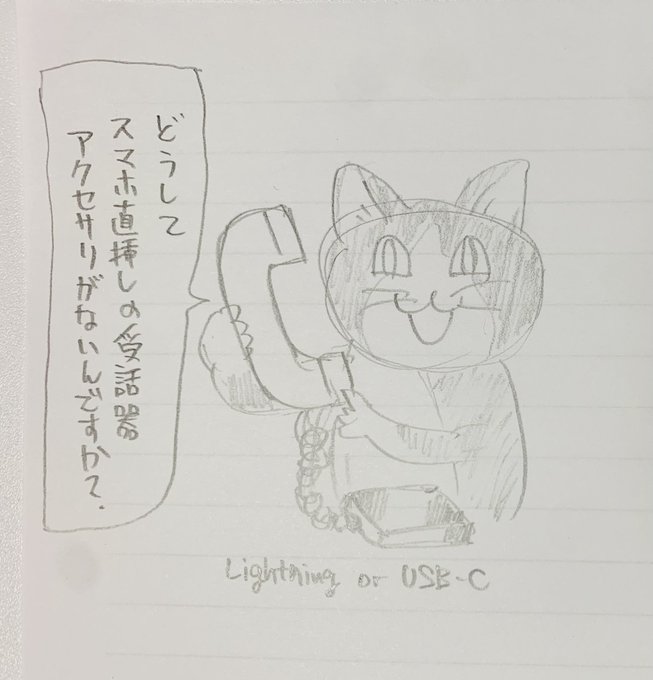 どうして
スマホ直挿しの受話器
アクセサリがないんですか?
Lightning or USB-C